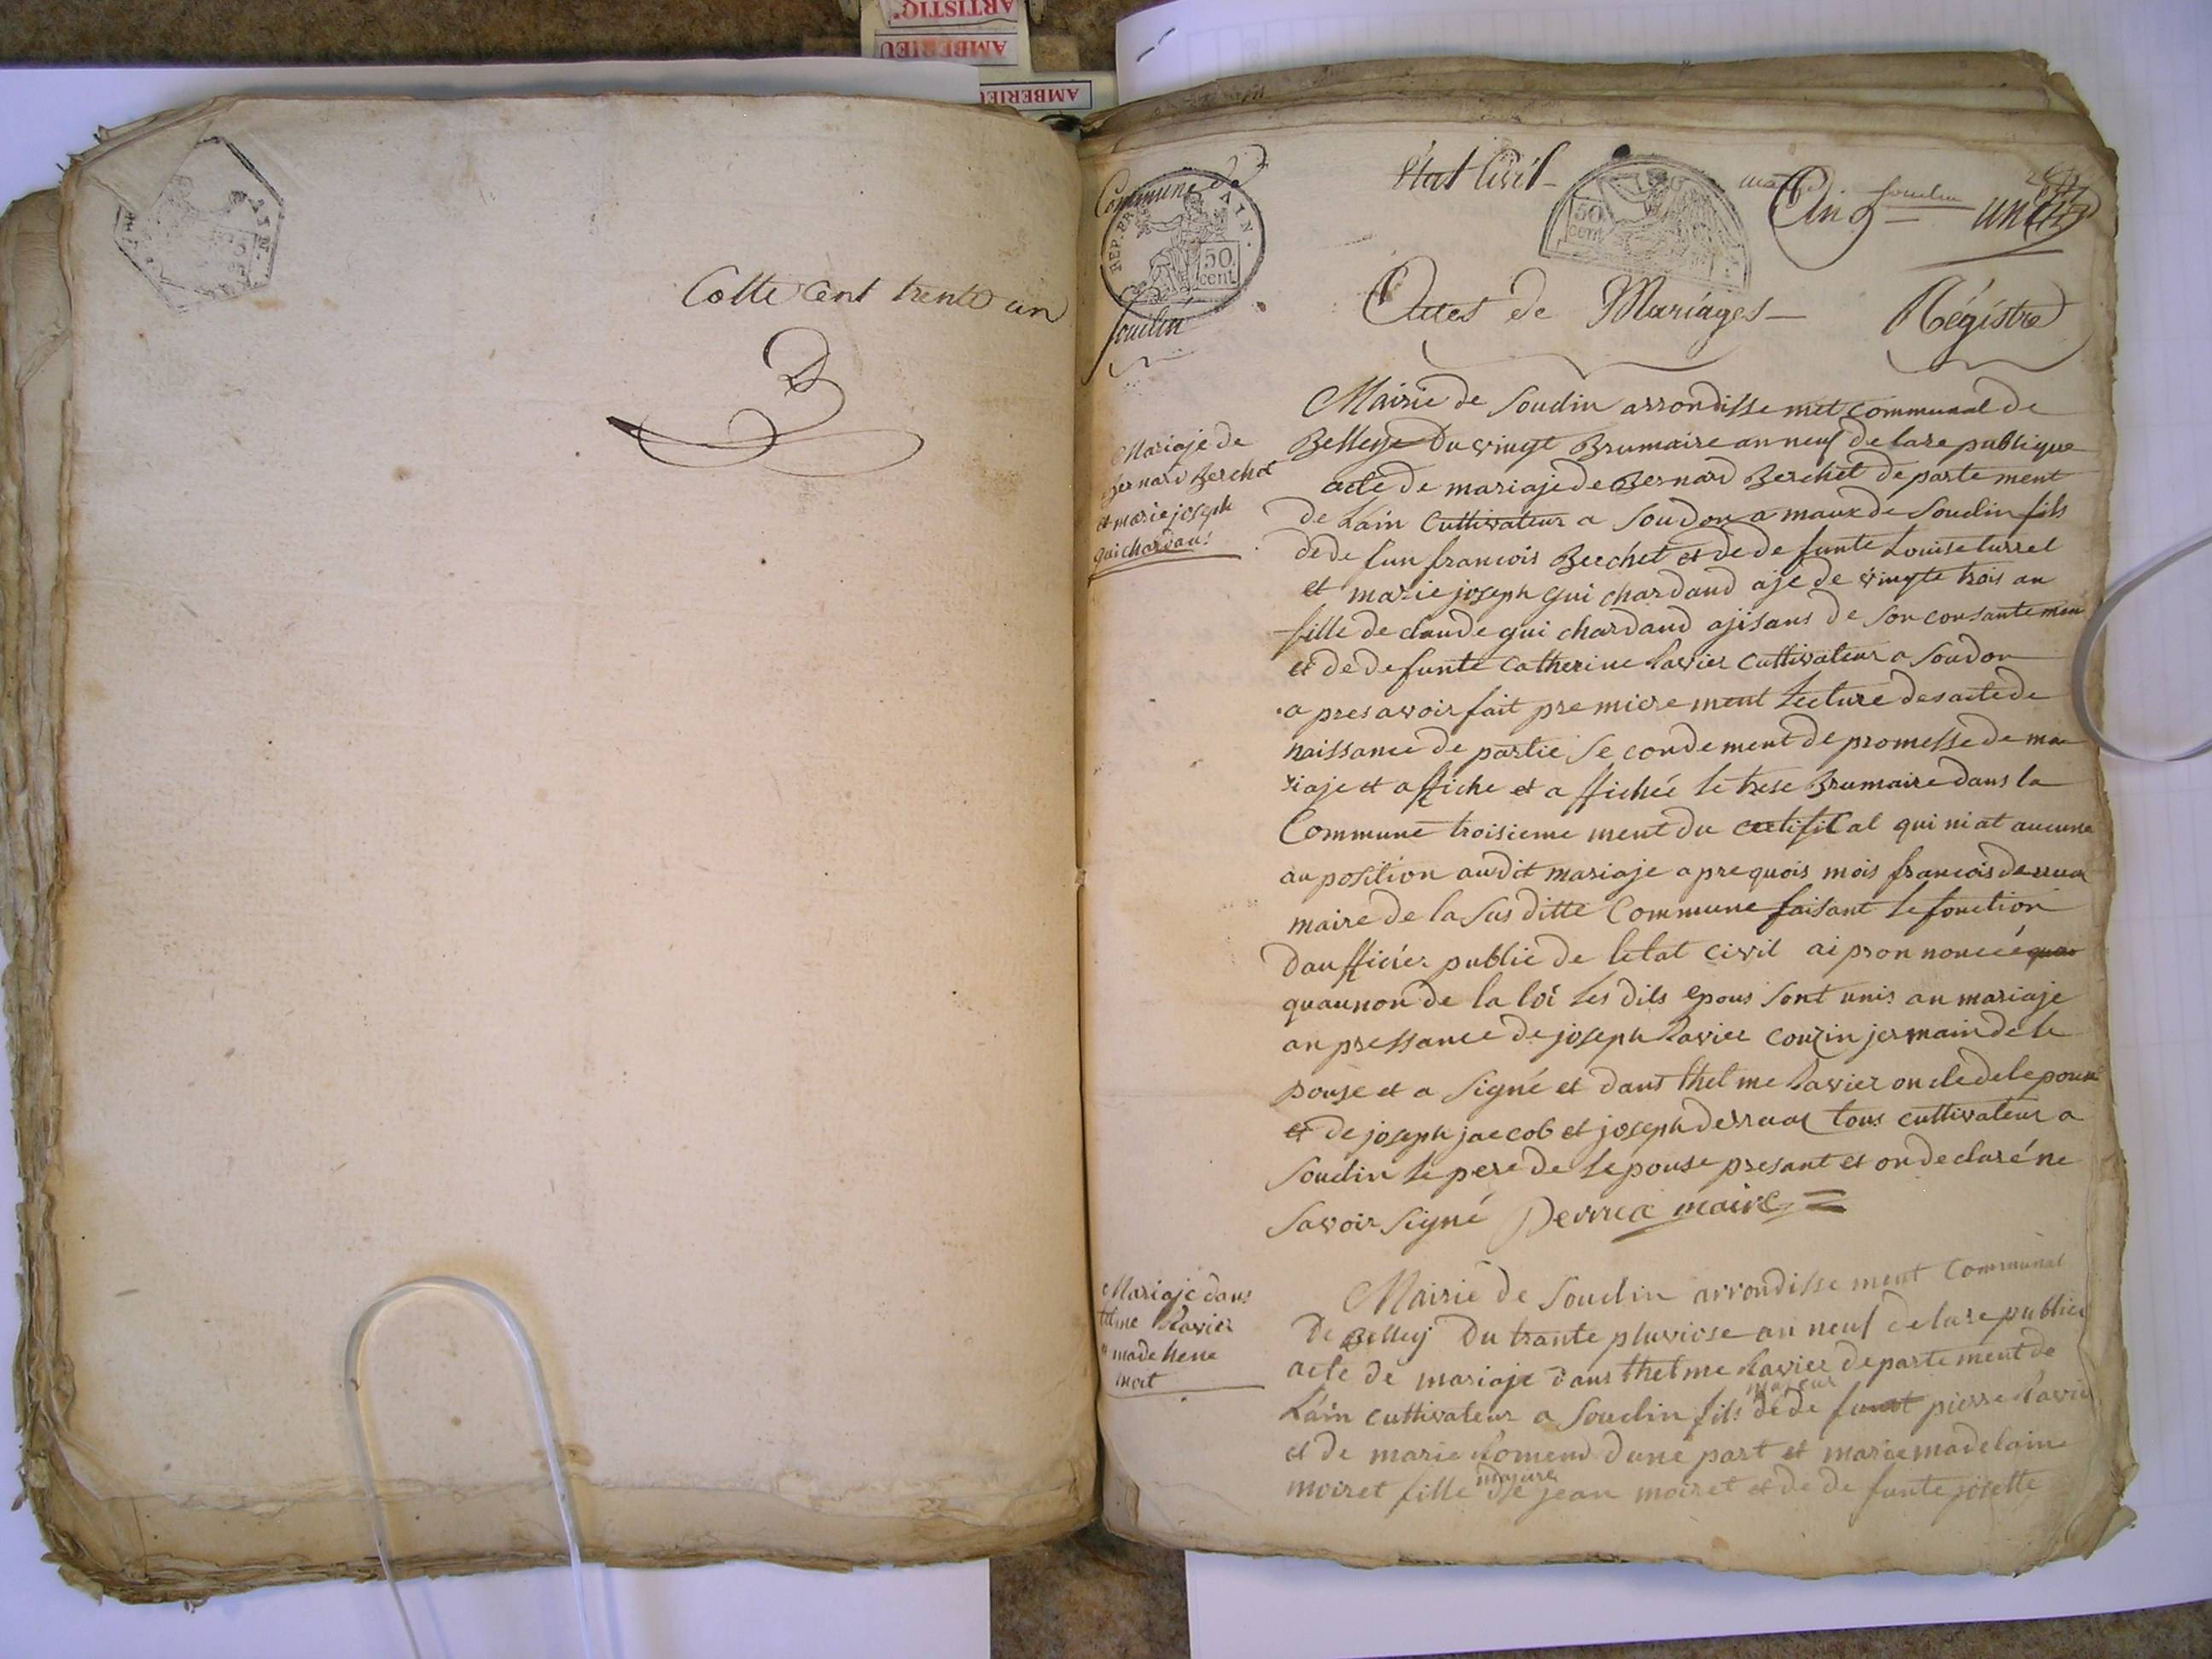 ARTISTIQ'
AMBERIEU
AMBERIEU
Cotte Cent trente un
Commune de
REP. FRA. AIN.
50 cent
souclin
état Civil
50 cent
An 9 un
souclin
Actes de Mariages Régistre
Mariaje de
Bernard Berchet
et marie joseph
guichardan
Mairie de Souclin arrondissemet communal de
Belleye Du vingt Brumaire an neuf de la re publique
acte de mariaje de Bernard Berchet de parte ment
de Lain Cultivateur a Soudon a maux de Souclin fils
de de fun francois Berchet et de de funte Louise turrel
et marie joseph gui chardand aje de vingte trois an
fille de claude gui chardand ajisans de son consantemen
et de de funte catherine Ravier cultivateur a Soudon
a pres avoir fait pre miere ment lecture des acte de
naissance de partie se conde ment de promesse de ma
riaje et affiche et a ffichée le trese Brumaire dans la
Commune troisieme ment du certifical qui ni at aucune
au position au dit mariaje a pre quois mois francois derrua
maire de la sus ditte Commune faisant le fonction
dau fficiér public de letat civil ai pron noncé quau
quaunon de la loi les dits epous sont unis an mariaje
an pressance de joseph Ravier couzin jermain de le
pouse et a signé et dans thel me Ravier oncle de le pouse
et de joseph jaecob et joseph derruax tous cultivateur a
Souclin le pere de le pouse presant et on declaré ne
savoir signé Derrua maire
Mariaje dans
telme Ravier
et made lene
moit
Mairie de Souclin arrondisse ment Communal
De Belley Du trante pluviose an neuf de la re public
acte de mariaje dans thelme Ravier departement de
majeur
Lain cultivateur a Souclin fils de de funt pierre Ravie
et de marie Romend dune part et marie madelaine
majure
moiret fille de jean moiret et de de funte josette